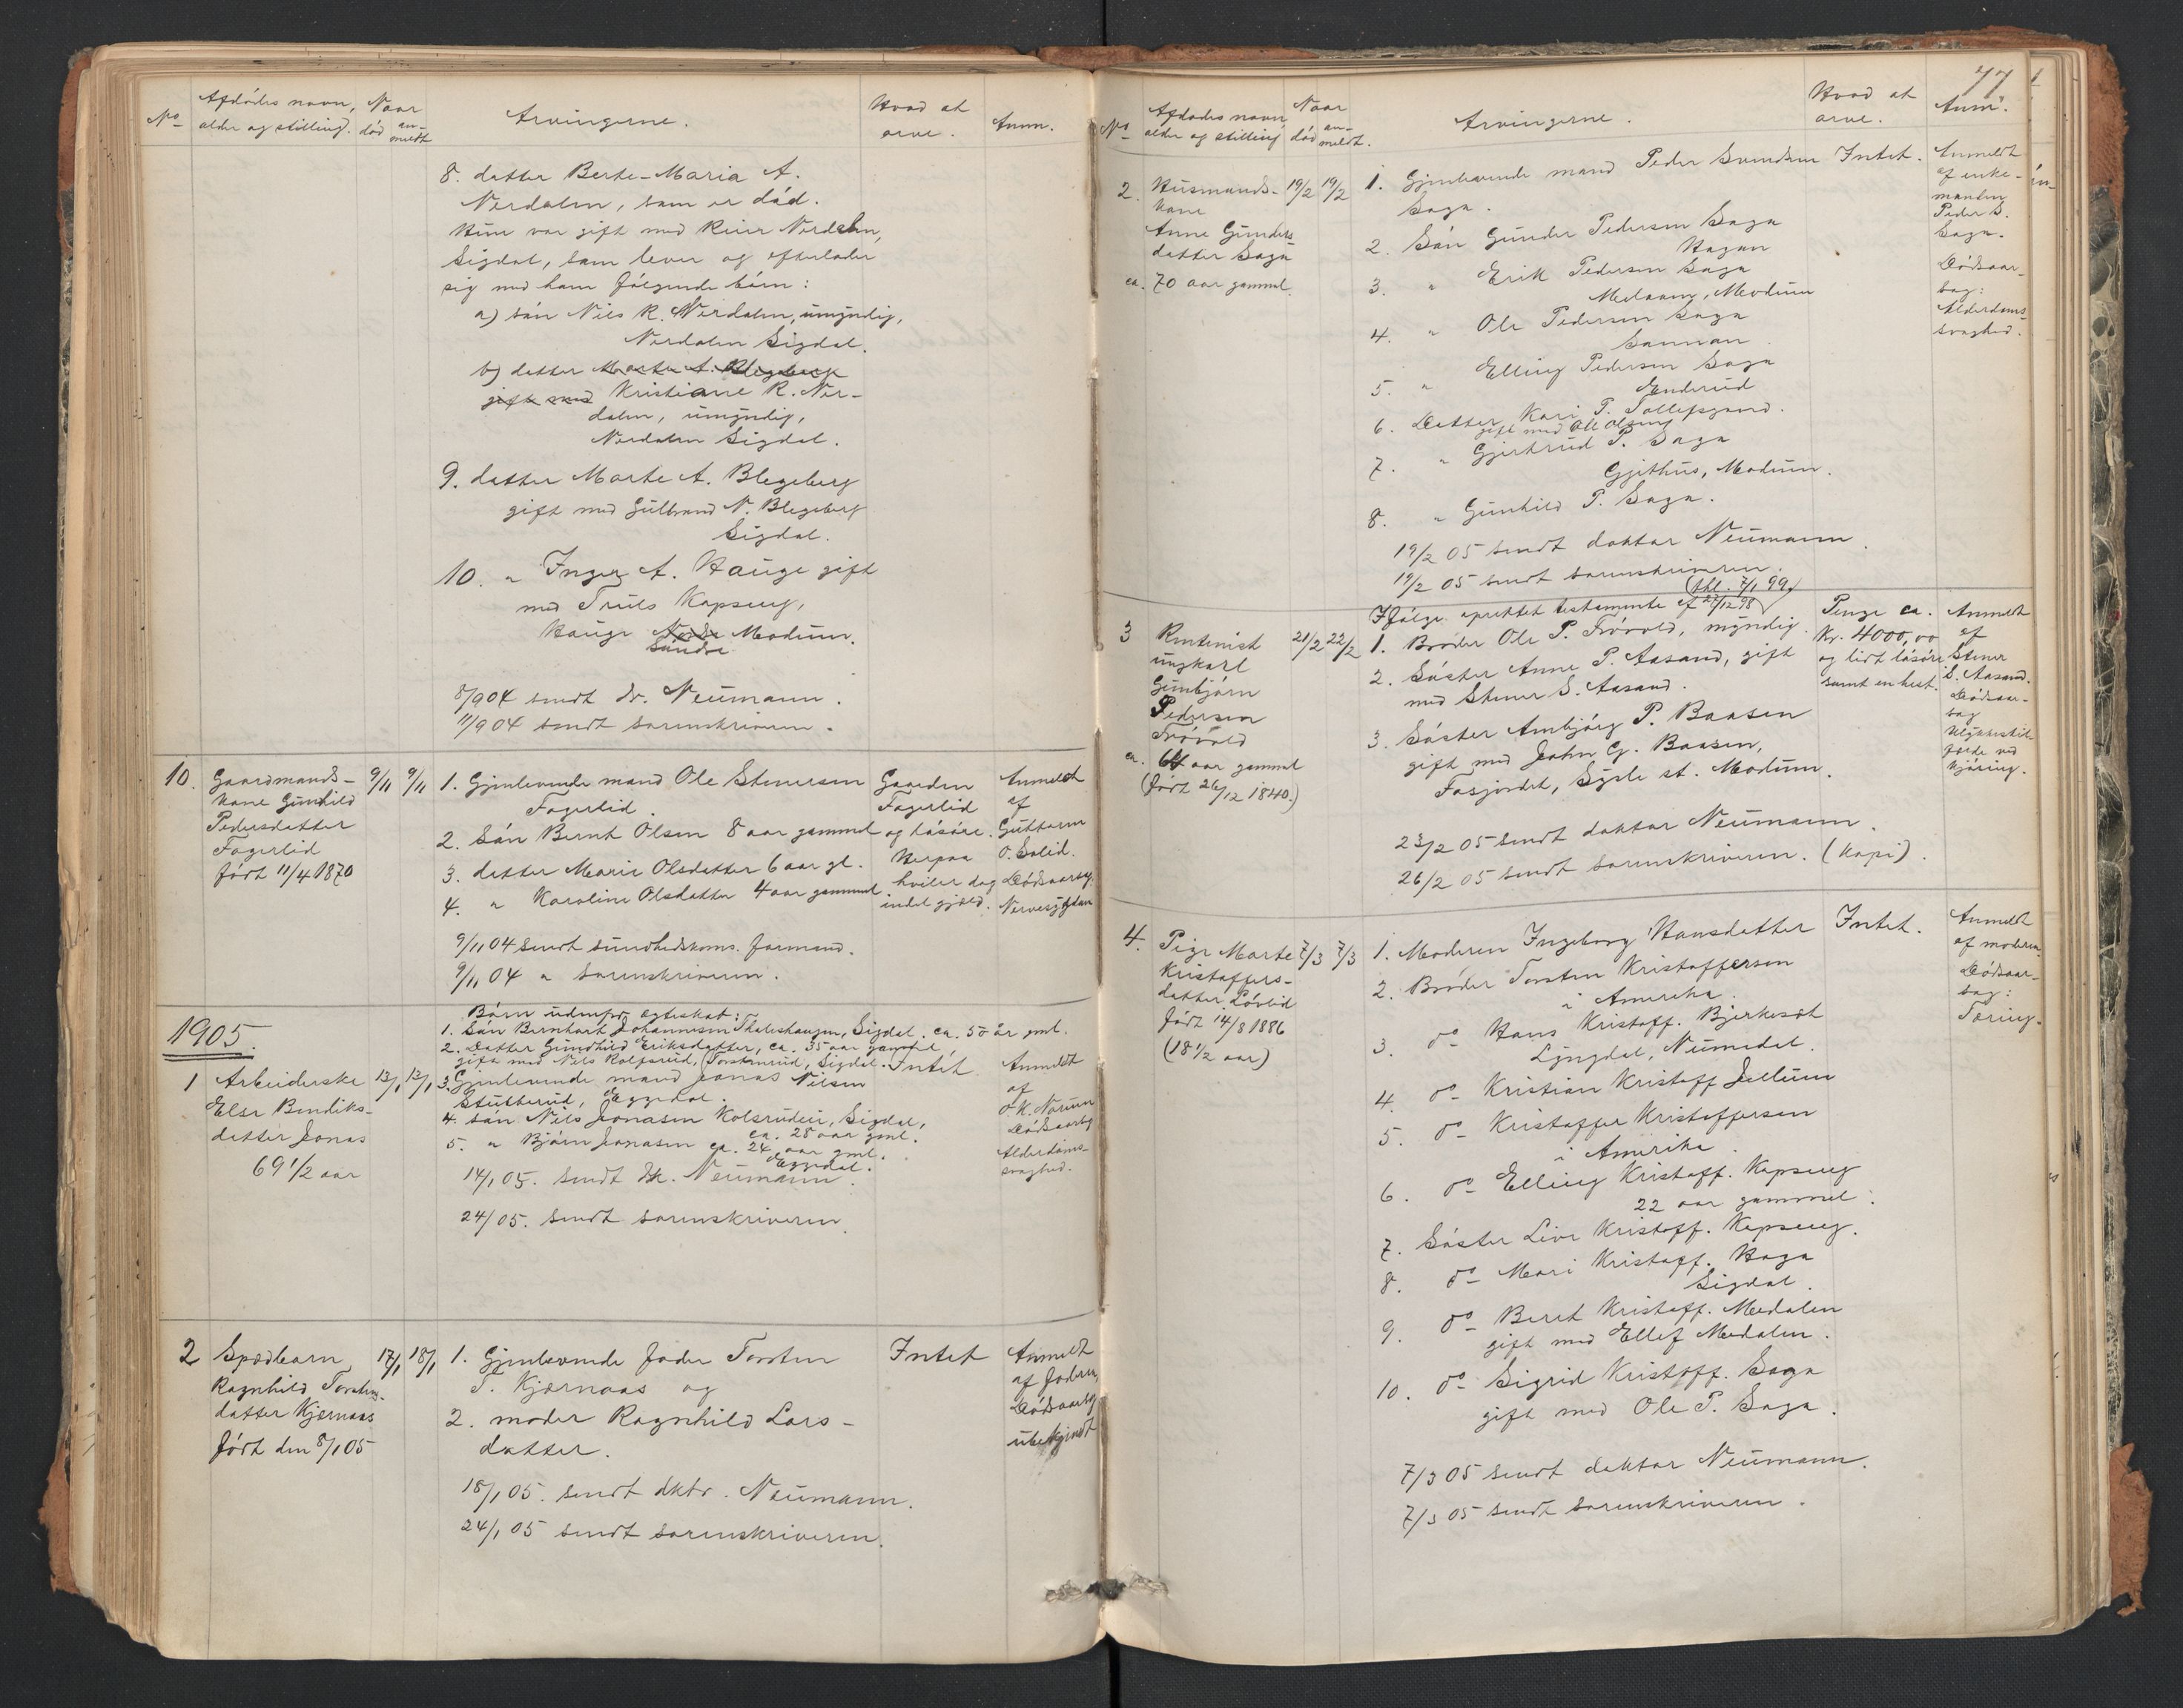 No Afdødes navn, alder og stilling. Naar død anmeldt Arvingerne. Hvad at arve. Anm.
8. datter Berte-Maria A.
Nerdalen, som er død.
Hun var gift med Reier Nerdalen,
Sigdal, som lever og efterlader
sig med ham følgende børn:
a) søn Nils R. Nerdalen, umyndig,
Nerdalen Sigdal.
b) datter Marte A. Blegeberg
gift med Kristiane R. Ner-
dalen, umyndig,
Nerdalen Sigdal.
9. datter Marte A. Blegeberg
gift med Gulbrand N. Blegeberg
Sigdal.
10. " Inger A. Hauge gift
med Truls Kopseng,
Hauge Nordre Modum.
Søndre
8/9 04 sendt dr. Neumann.
11/9 04 sendt sorenskriveren.
10. Gaardmands-
kone Gunhild
Pedersdatter
Fagerlid
født 11/4 1870
9/11 9/11
1. Gjenlevende mand Ole Stenersen
Fagerlid.
2. Søn Bernt Olsen 8 aar gammel
3. datter Marie Olsdatter 6 aar gl.
4. " Karoline Olsdatter 4 aar gammel.
9/11 04 sendt sundhedskoms. formand.
9/11 04 " sorenskriveren.
Gaarden
Fagerlid
og løsøre.
Herpaa
hviler dog
endel gjæld.
Anmeldt
af
Guttorm
O. Solid.
Dødsaarsag.
Nervesygdom
1905.
1 Arbeiderske
Else Bendiks-
datter Jonas
69 1/2 aar
13/1 13/1
Børn udenfor ægteskab:
1. Søn Bernhart Johannesen Thaleshaugen, Sigdal, ca. 50 år gml.
2. Datter Gundhild Eriksdatter, ca. 35 aar gammel
gift med Nils Kolfsrud, (Torstenrud, Sigdal.
3. Gjenlevende mand Jonas Nilsen
Stutterud, Eggedal.
4. søn Nils Jonasen Kolsrudeie, Sigdal,
ca. 28 aar gml.
5. " Bjørn Jonasen ca. 24 aar gml.
Eggedal.
14/1 05. sendt dk. Neumann.
24/1 05. sendt sorenskriveren.
Intet
Anmeldt
af
O. K. Narum
Dødsaarsag
Alderdoms-
svaghed.
2 Spædbarn
Ragnhild Torstens-
datter Kjernaas
Født den 8/1 05
17/1 18/1
1. Gjenlevende fader Torsten
T. Kjærnaas og
2. moder Ragnhild Lars-
datter.
18/1 05. sendt dktr. Neumann.
24/1 05 sendt sorenskriveren.
Intet
Anmeldt
af faderen
Dødsaarsag
ubekjendt
77
No Afdødes navn alder og stilling Naar død anmeldt. Arvingerne. Hvad at arve. Anm.
2. Husmands-
kone
Anne Gunders
datter Saga
ca. 70 aar gammel.
19/2 19/2
1. Gjenlevende mand Peder Svendsen
Saga.
2. Søn Gunder Pedersen Saga
Hagan
3. " Erik Pedersen Saga
Melaaen, Modum
4. " Ole Pedersen Saga
Sannan.
5. " Elling Pedersen Saga
Enderud
6. Datter Kari P. Tollefsgaard.
gift med Ole Olsen
7. " Gjertrud P. Saga
Gjethus, Modum.
8. " Gunhild P. Saga.
19/2 05 sendt doktor Neumann.
19/2 05 sendt sorenskriveren.
Intet.
Anmeldt
af enke-
manden
Peder S.
Saga.
Dødsaar-
sag:
Alderdoms-
svaghed.
3 Rentenist
ungkarl
Gunbjørn
Pedersen
Frøvold
ca. 64 aar gammel
(født 26/12 1840.)
21/2 22/2
Ifølge oprettet testamente af 22/12 98 (thl. 7/1 99)
1. Broder Ole P. Frøvold, myndig.
2. Søster Anne P. Aasand, gift
med Stener S. Aasand.
3. Søster Ambjørg P. Baasen
gift med John G. Baasen,
Fasjordet, Sysle st. Modum.
23/2 05 sendt doktor Neumann.
26/2 05 sendt sorenskriveren. (Kopi).
Penge ca.
Kr. 4000,00
og lidt løsøre
samt en hest.
Anmeldt
af
Stener
S. Aasand.
Dødsaar-
sag
Ulykkestil-
fælde ved
kjøring.
4. Pige Marte
Kristoffers-
datter Løvlid
født 14/8 1886
(18 1/2 aar)
7/3 7/3
1. Moderen Ingeborg Hansdatter
2. Broder Torsten Kristoffersen
i Amerika.
3. do Hans Kristoff. Bjerkesæt
Lyngdal, Numedal.
4. do Kristian Kristoff Jellum
5. do Kristoffer Kristoffersen
i Amerika.
6. do Elling Kristoff. Kopseng
22 aar gammel.
7. Søster Live Kristoff. Kopseng.
8. do Mari Kristoff. Haga
Sigdal.
9. do Beret Kristoff. Medalen
gift med Ellef Medalen.
10. do Sigrid Kristoff. Saga
gift med Ole P. Saga.
7/3 05 sendt doktor Neumann.
7/3 05 sendt sorenskriveren.
Intet.
Anmeldt
af moderen.
Dødsaar-
sag:
Tæring.